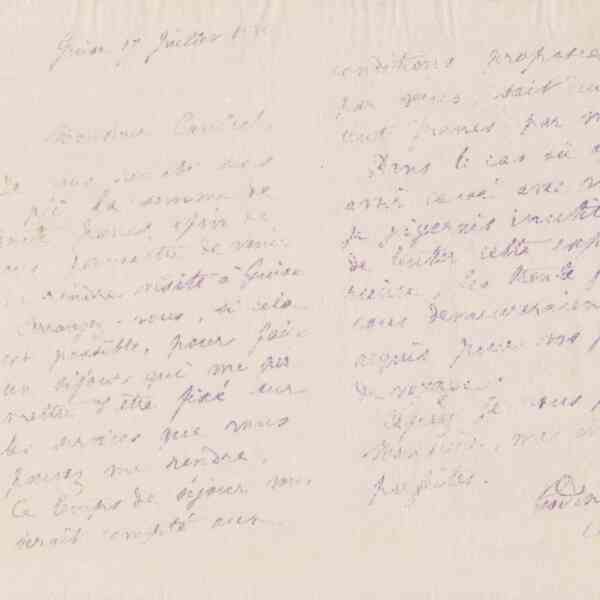 Guise 17 Juillet
Monsieur
Je vous
la somme de
cent francs afin de
vous permettre de venir
rendre visite à Guise
Arrangez-vous, si cela
est possible, pour faire
un séjour qui me per
mette d'être fixé sur
les services que vous
pouvez me rendre.
Ce temps de séjour vous
serait compté aux
conditions proposées
par vous, soit
cent francs par
Dans le cas où
avoir causé avec
je jugerais inutile
de tenter cette expé
rience, les
vous demeureraient
acquis pour vos
de voyage.
Agréez je vous
Monsieur, mes
parfaites.